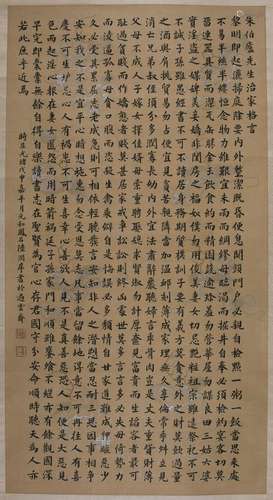 朱伯廬先生治家格言
黎明即起灑掃庭除要內外整潔既昏便息關鎖門戶必親自檢點一粥一飯當思來處
不易半絲半縷恒念物力維艱宜未雨而綢繆毋臨渴而掘井自奉必須儉約宴客切莫
留連器具質而潔瓦缶勝金玉飲食約而精園蔬逾珍羞勿營華屋勿謀良田三姑六婆
實淫盜之媒婢美妾嬌非閨房之福奴僕勿用俊美妻妾切忌艷粧祖宗雖遠祭祀不可
不誠子孫雖愚經書不可不讀居身務期質樸訓子要有義方莫貪意外之財莫飲過量
之酒與肩挑貿易勿佔便宜見貧苦親鄰須加溫卹刻薄成家理無久享倫常乖舛立見
消亡兄弟叔侄須分多潤寡長幼內外宜法肅辭嚴聽婦言乖骨肉豈是丈夫重貲財薄
父母不成人子嫁女擇佳婿毋索重聘娶婦求淑女勿計厚奩見富貴而生諂容者最可
恥遇貧窮而作驕態者賤莫甚居家戒爭訟訟則終凶處世戒多言言多必失毋恃勢力
而凌逼孤寡毋貪口腹而恣殺生禽乖僻自是悔誤必多頹惰自甘家道難成狎暱惡少
久必受其累屈志老成急則可相依輕聽發言安知非人之譖愬當忍耐三思因事相爭
焉知非我之不是宜平心暗想施惠無念受恩莫忘凡事當留餘地得意不宜再往人有喜
慶不可生妒忌心人有禍患不可生喜幸心善欲人見不是真善惡恐人知便是大惡見
色而起淫心報在妻女匿怨而用暗箭禍延子孫家門和順雖饔飧不繼亦有餘歡國課
早完即囊橐無餘自得至樂讀書志在聖賢為官心存君國守分安命順時聽天為人
若此庶乎近焉
時在光緒戊申嘉平月元和鳳石陸潤庠書於